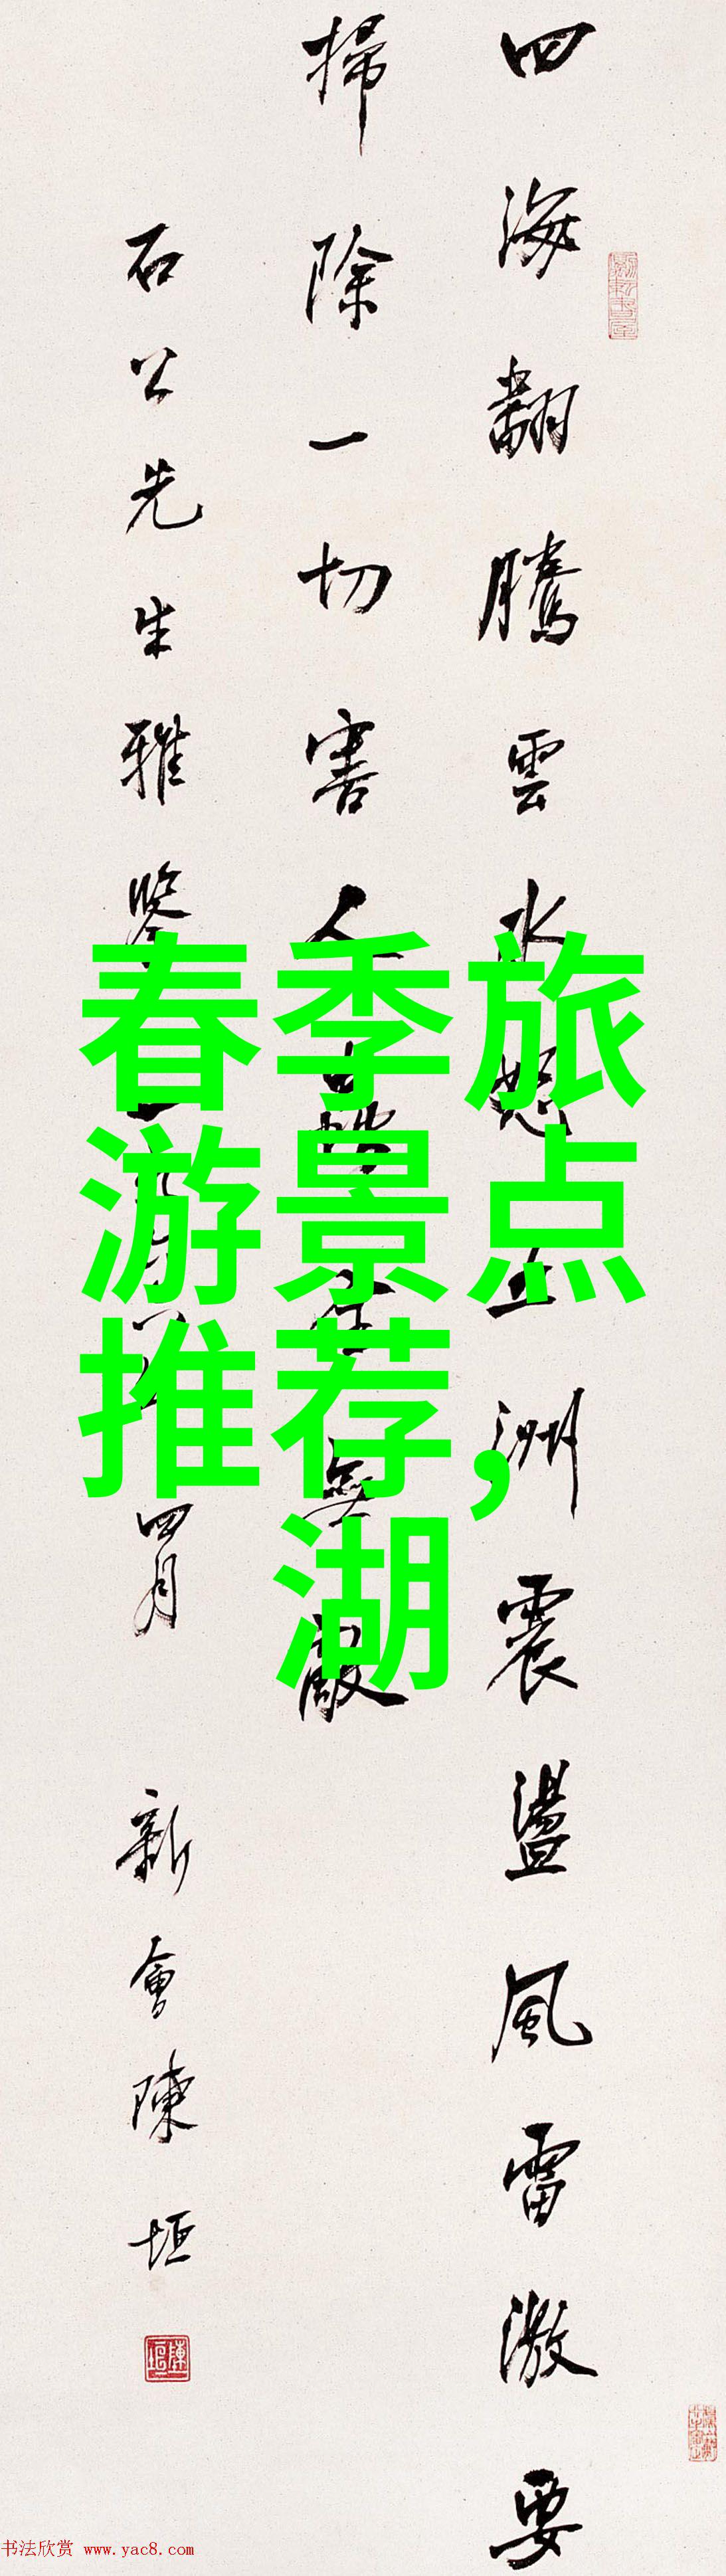 四海翻騰雲水怒五洲震盪風雷激要
掃除一切害人
無敵
石公先生雅鑒一九
四月
新會陳垣
春季旅
游景点
推荐,
湖
陳垣
书法欣赏 www.yac8.com